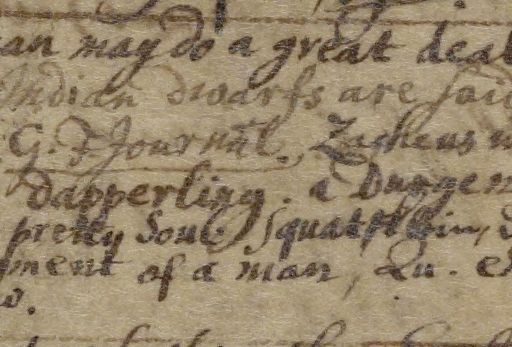 an may do a great deal
Indian dwarfs are said
G. T Journal. Zacheus
dapperling. a Durgen
pretty Soul squat,
pment of a man, Qu.
w.